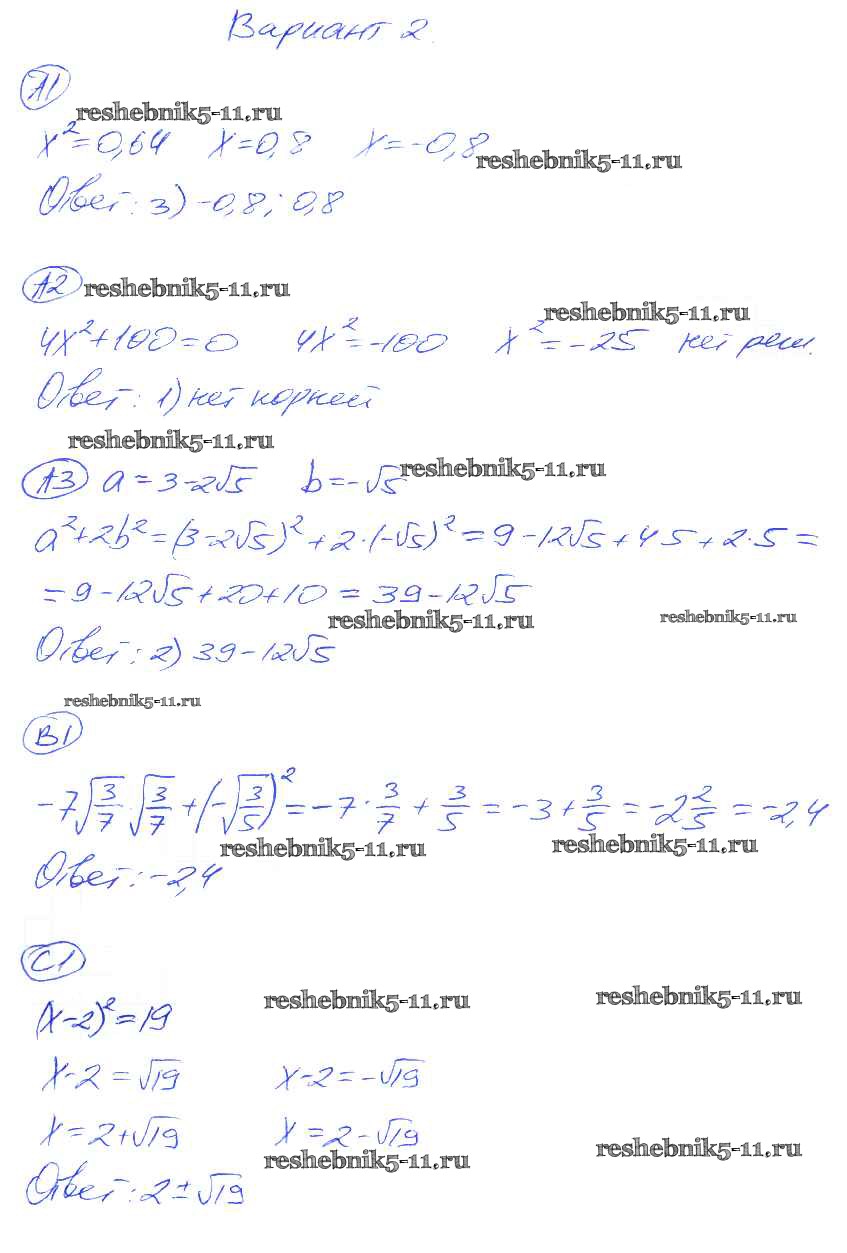 Вариант 2.
А1
reshebnik5-11.ru
x²=0,64 x=0,8 x=-0,8
reshebnik5-11.ru
Ответ: 3) -0,8; 0,8
А2 reshebnik5-11.ru
reshebnik5-11.ru
4x²+100=0 4x²=-100 x²=-25 нет реш.
Ответ: 1) нет корней
reshebnik5-11.ru
А3 a=3-2√5 b=-√5 reshebnik5-11.ru
a²+2b²=(3-2√5)²+2·(-√5)²=9-12√5+4·5+2·5=
=9-12√5+20+10=39-12√5
reshebnik5-11.ru reshebnik5-11.ru
Ответ: 2) 39-12√5
reshebnik5-11.ru
В1
-7√3/7·√3/7+(-√3/5)²=-7·3/7+3/5=-3+3/5=-2 2/5=-2,4
reshebnik5-11.ru reshebnik5-11.ru
Ответ: -2,4
С1
reshebnik5-11.ru reshebnik5-11.ru
(x-2)²=19
x-2=√19 x-2=-√19
x=2+√19 x=2-√19
reshebnik5-11.ru reshebnik5-11.ru
Ответ: 2±√19